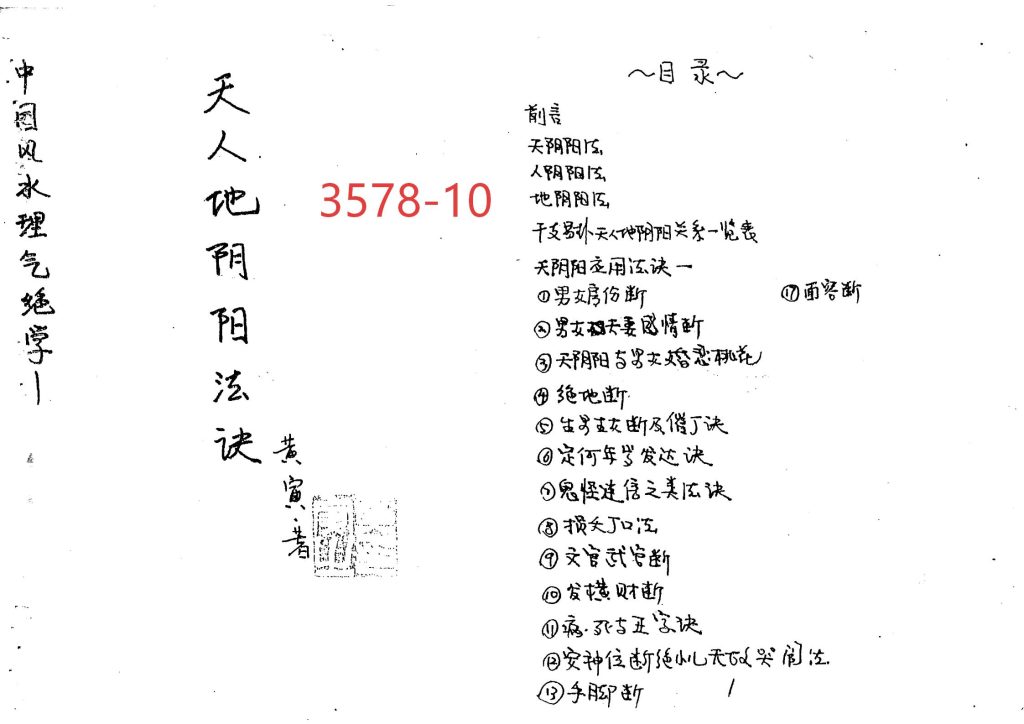 中国风水理气绝学
天人地阴阳法诀
黄寅著
3578-10
~目录~
前言
天阴阳法
人阴阳法
地阴阳法
干支易卦天人地阴阳关系一览表
天阴阳应用法诀一
①男女房份断
⑰面容断
②男女夫妻感情断
③天阴阳与男女婚恋桃花
④绝地断
⑤生男生女断及催丁诀
⑥定何年岁发达诀
⑦鬼怪迷信之类法诀
⑧损丁口法
⑨文官武官断
⑩发横财断
⑪病.死与正字诀
⑫安神位断绝小儿无故哭闹法
⑬手脚断
1